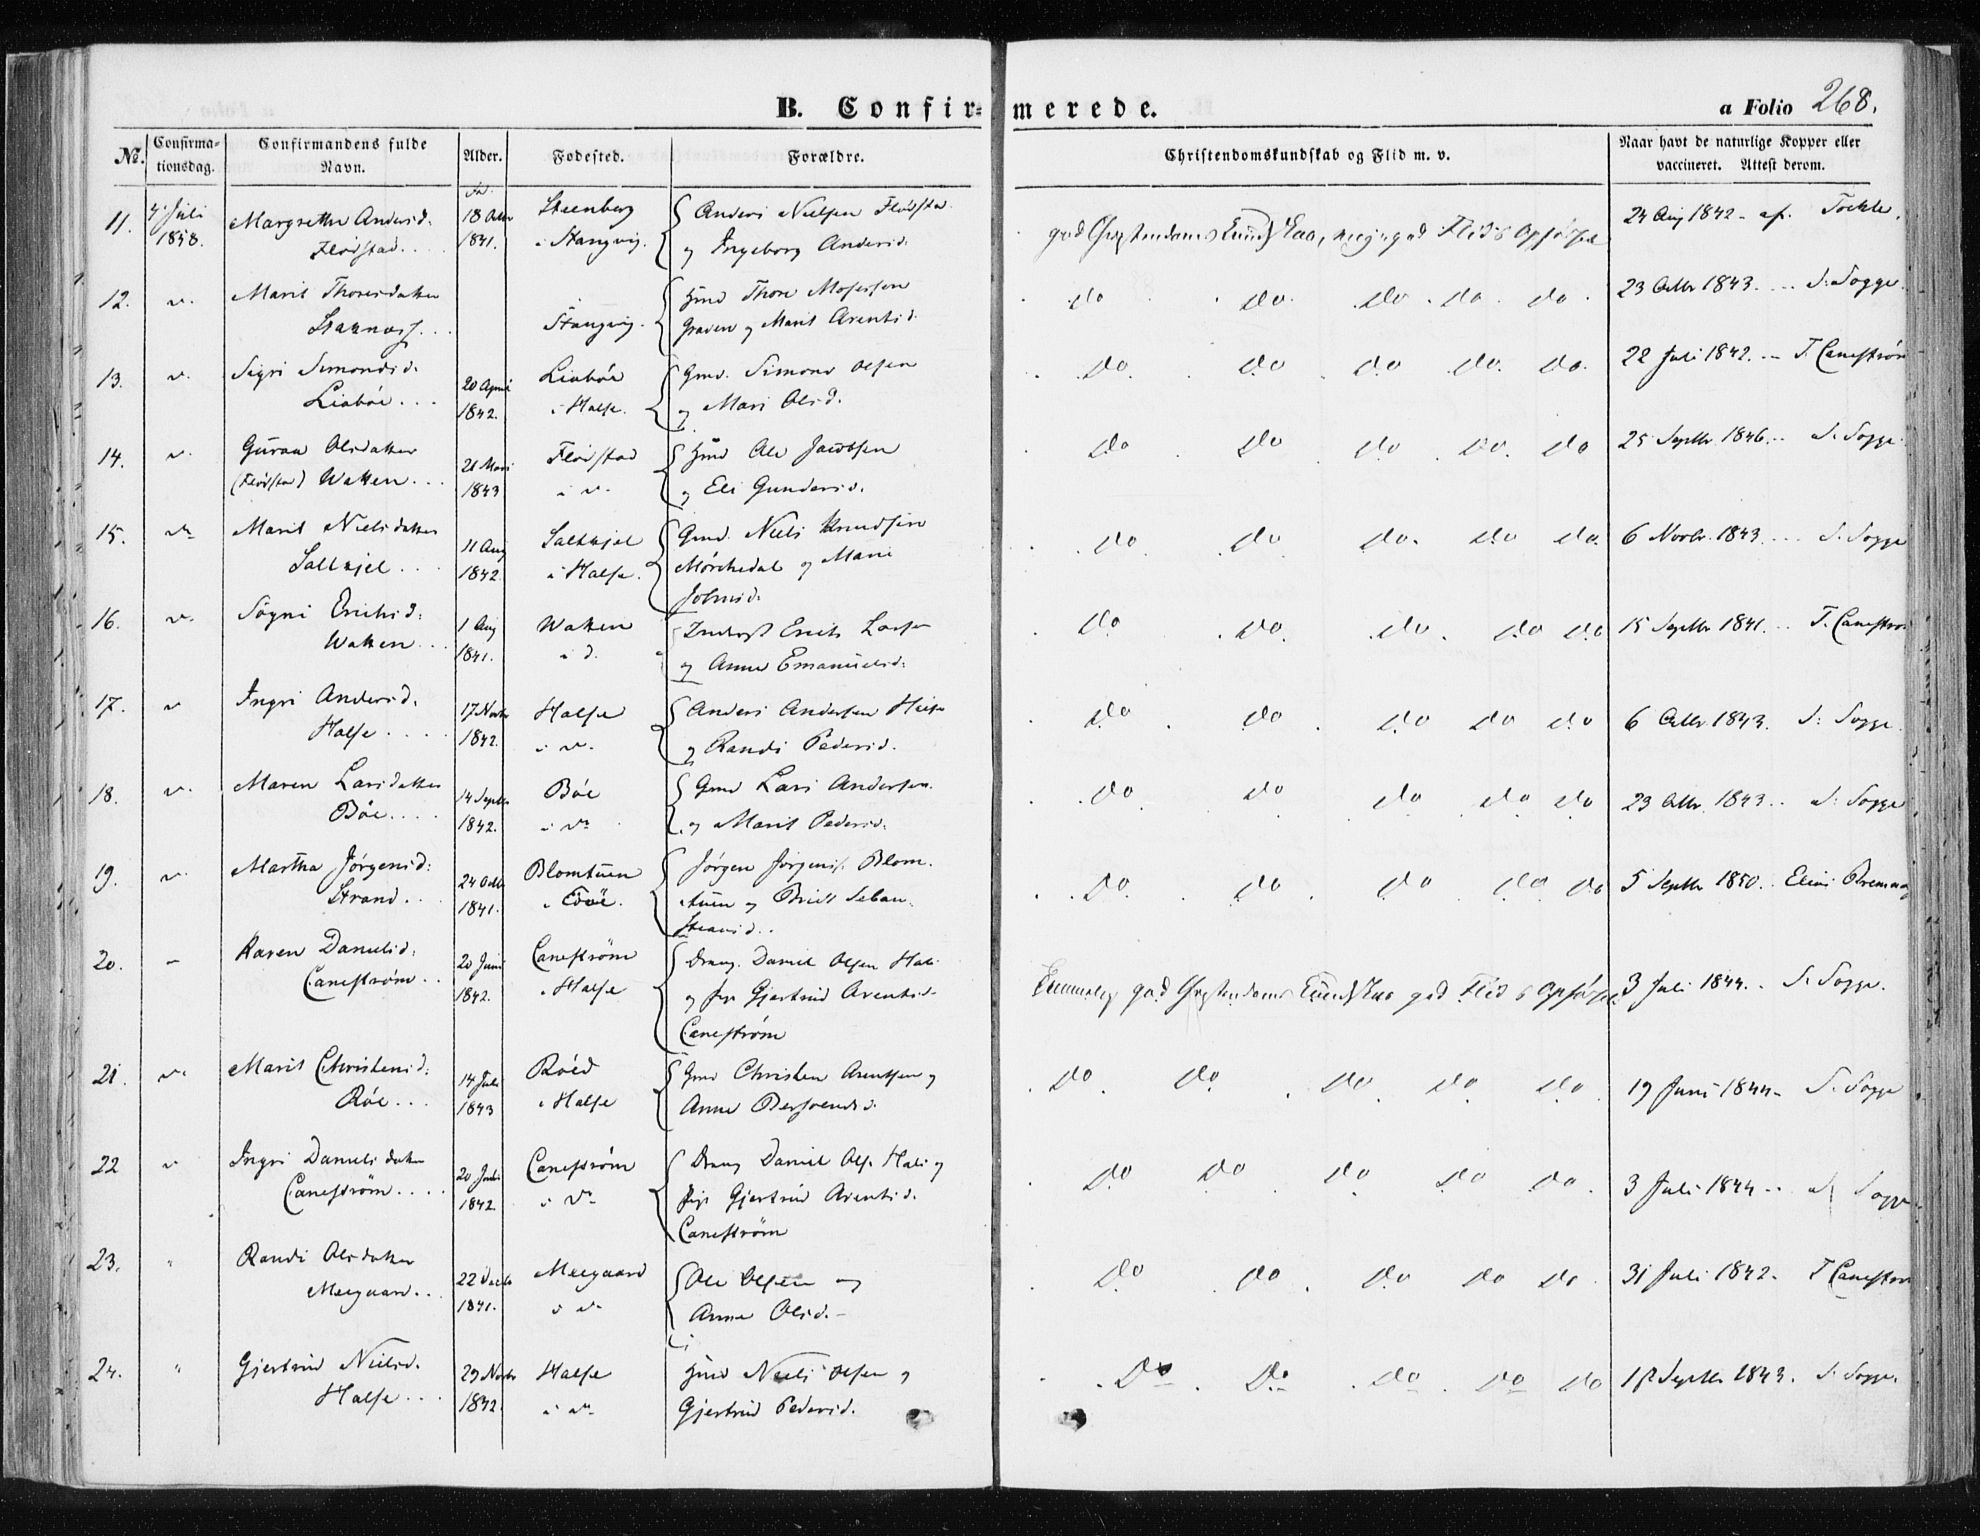 B. Confirmerede.
a Folio 268.
No.
Confirmationsdag.
Confirmandens fulde Navn.
Alder.
Fødested.
Forældre.
Christendomskundskab og Flid m. v.
Naar havt de naturlige Kopper eller vaccineret. Attest derom.
11. 4. Juli Margrethe Andersd. 18 Octbr Steenberg Anders Nielsen Flødstad 24 Aug 1842 - af.
1858. Flødstad. 1841. i Stangvig. og Ingeborg Andersd. god Christendoms Kundskab, meget god Flid &
12. Marit Thoresdatter Gmd Thore Mosessen do do. do. do. do. 23 Octbr 1843. S. Sogge.
Stangvig. Graven og Marit Arentsd.
13. Sigri Simonsd. 20 April Liabøe Gmd. Simon Olsen do. do. do. do. do. 22 Juli 1842. T. Canestrøm
Liabøe 1842. i Halse. og Mari Olsd.
14. Guroe Olsdatter 21 Mars Flødstad Gmd Ole Jacobsen do do do do. do 25 Septbr 1846 S. Sogge.
(Flødstad) Wakken 1843 og Eli Gundersd.
15. Marit Nielsdatter 11 Aug Saltkjel Gmd. Niels Knudsen do do do. do do. 6 Novbr. 1843 S. Sogge
Saltkjel 1842 i Halse. Mørkedal og Marie
Johnsd.
16. Søgni Erichsd. 1 Aug Wakken Erich Larsen do do. do. do do 15 Septbr 1841. T. Canestrøm
Wakken 1841. i d. og Anne Emanuelsd.
17. Ingri Andersd. 17 Novbr Halse Anders Andersen Halse do do do do do 6 Octbr 1843. S. Sogge.
Halse 1842. og Randi Pedersd.
18. Maren Larsdatter 14 Septbr Bøe Gmd Lars Andersen. do do do do do 23 Octbr. 1843 S. Sogge
Bøe 1842. og Marit Pedersd.
19. Martha Jørgensd. 24 Octbr Blomtuen Jørgen Jørgens. Blom- do. do do do do 5 Septbr 1850. Elias
Strand. 1841. tuen og Brit Seban-
stiansd.
20. Karen Danielsd. 20 Juni Canestrøm Drang. Daniel Olsen Hals 3 Juli 1844. S. Sogge.
Canestrøm 1842. i Halse og Pige Gjertrud Arentsd. god Christendoms Kundskab god Flid &
Canestrøm
21. Marit Christensd. 14 Juli Røed Gmd Christen Arentsen og do do do do do 19 Juni 1844 S. Sogge
Røe 1843 i Halse Anne
22 Ingri Danielsdatter 20 Juni Canestrøm Drang Daniel Ols. Hals og do do do do do. 3 Juli 1844 S Sogge
Canestrøm 1842. Pige Gjertrud Arentsd.
Canestrøm
23. Randi Olsdatter 22 Decbr Meegaard Ole Olsen og do do do do do 31 Juli 1842. T Canestrøm
Meegaard 1841. Anne Olsd.
24. Gjertrud Nielsd. 29 Novbr Halse Gmd Niels Olsen og do do do do do 18 Septbr 1843. S. Sogge.
Halse 1842. Gjertrud Pedersd.